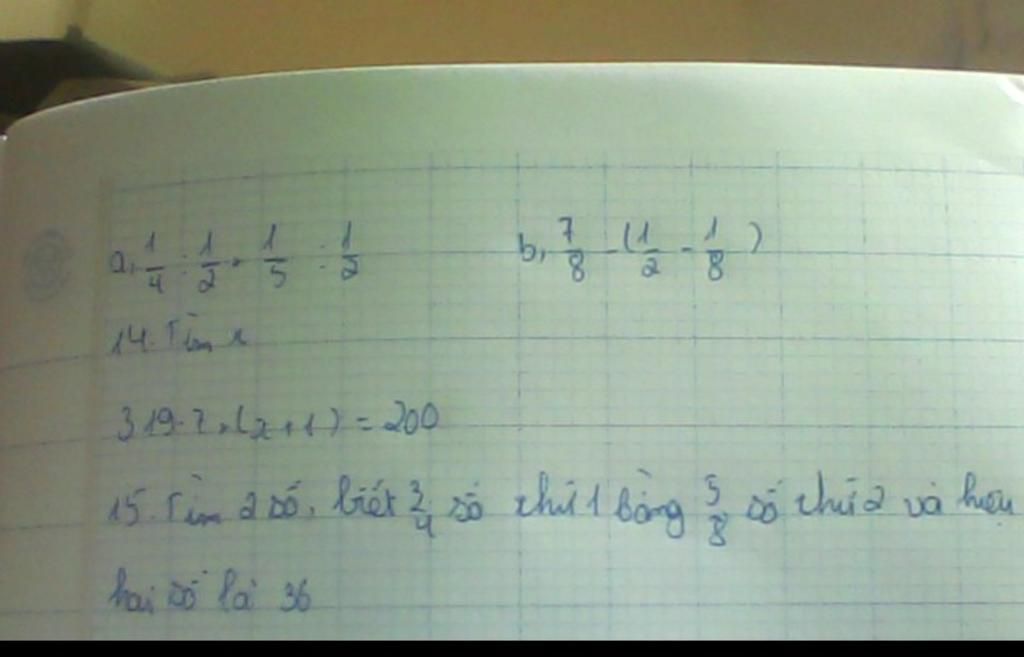 a, 1/4 : 1/2 + 1/5 : 1/2 b, 7/8 - (1/2 - 1/8)
14. Tìm x
319 - 7 . (x + 1) = 200
15. Tìm 2 số, biết 3/4 số thứ 1 bằng 5/8 số thứ 2 và hiệu
hai số là 36